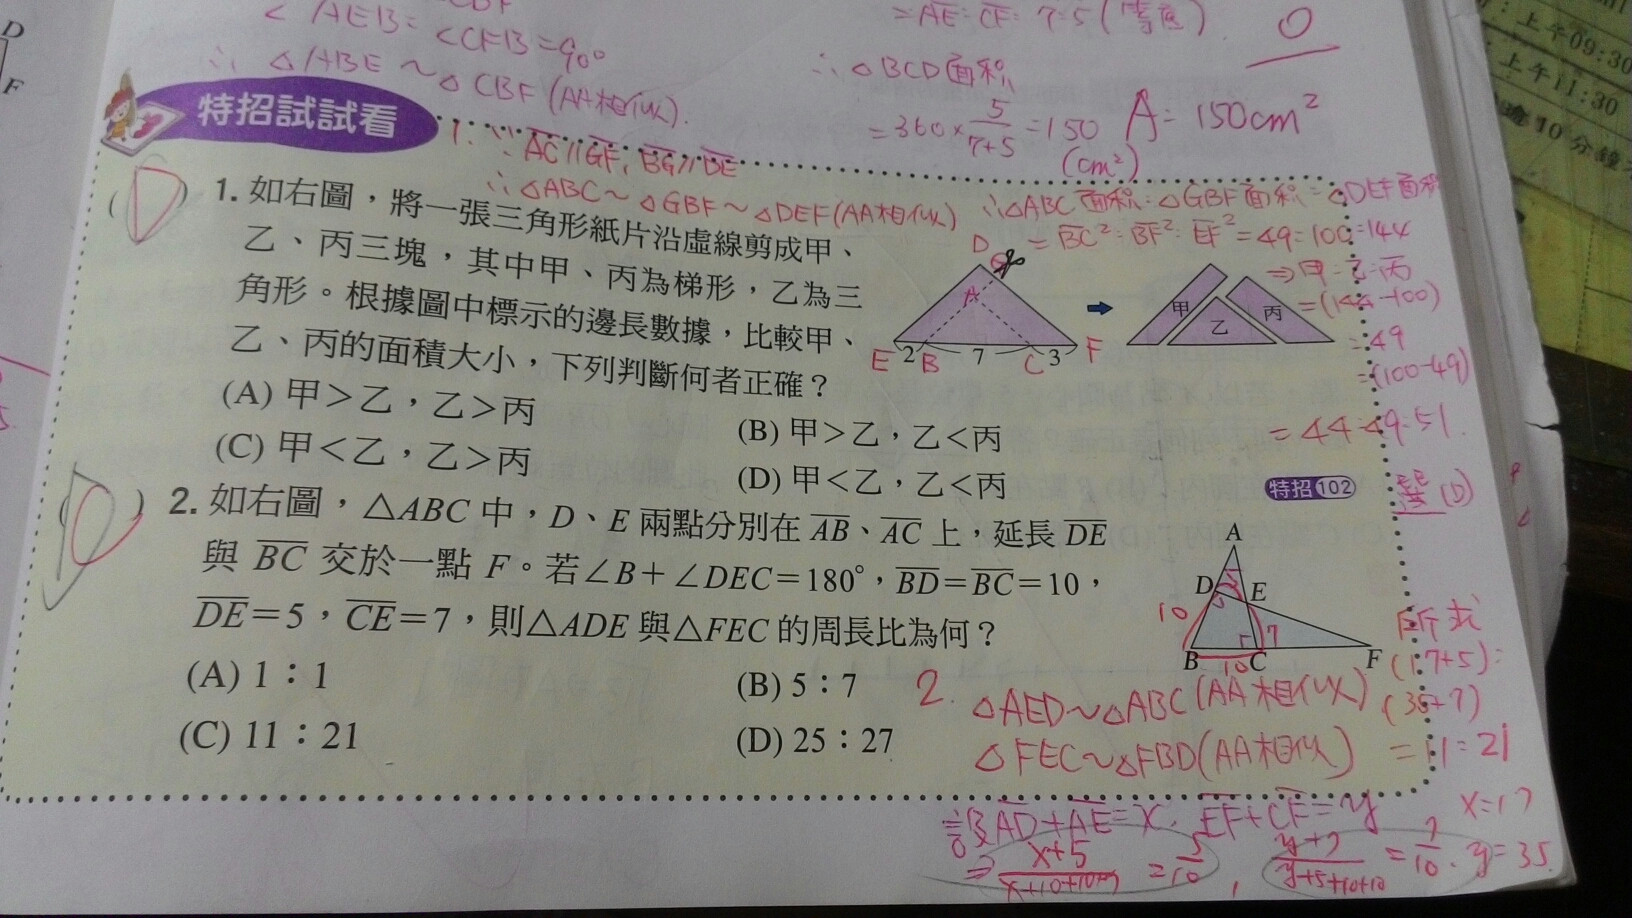 ∠AEB=∠CFB=90°
∴△ABE~△CBF(AA相似).
=AE:CF=7:5(等底)
∴△BCD面積
=360×5/(7+5)=150
(cm²)
A=150cm²
上午09:30
上午11:30
10分鐘
D
F
特招試試看
1. ∵AC//GF, BG//DE
∴△ABC~△GBF~△DEF(AA相似) ∴△ABC面積:△GBF面積=△DEF面積
=BC²:BF²:EF²=49:100:144
⇒甲:乙:丙
=(144-100)
:49
:(100-49)
=44:49:51.
選(D)
(D) 1. 如右圖,將一張三角形紙片沿虛線剪成甲、
乙、丙三塊,其中甲、丙為梯形,乙為三
角形。根據圖中標示的邊長數據,比較甲、
乙、丙的面積大小,下列判斷何者正確?
(A) 甲>乙,乙>丙
(B) 甲>乙,乙<丙
(C) 甲<乙,乙>丙
(D) 甲<乙,乙<丙
特招102
D
G
A
E 2 B 7 C 3 F
甲 乙 丙
2. 如右圖,△ABC 中,D、E 兩點分別在 AB、AC 上,延長 DE
與 BC 交於一點 F。若∠B+∠DEC=180°,BD=BC=10,
DE=5,CE=7,則△ADE 與△FEC 的周長比為何?
(A) 1:1
(B) 5:7
(C) 11:21
(D) 25:27
A
D E
10 5 7
B 10 C F
2. △AED~△ABC(AA相似)
△FEC~△FBD(AA相似)
所求
(17+5):
(35+7)
=11:21
設AD+AE=x, EF+CF=y
⇒(x+5)/(x+10+10+7)=5/10, (y+7)/(y+5+10+10)=7/10.
x=17
y=35.